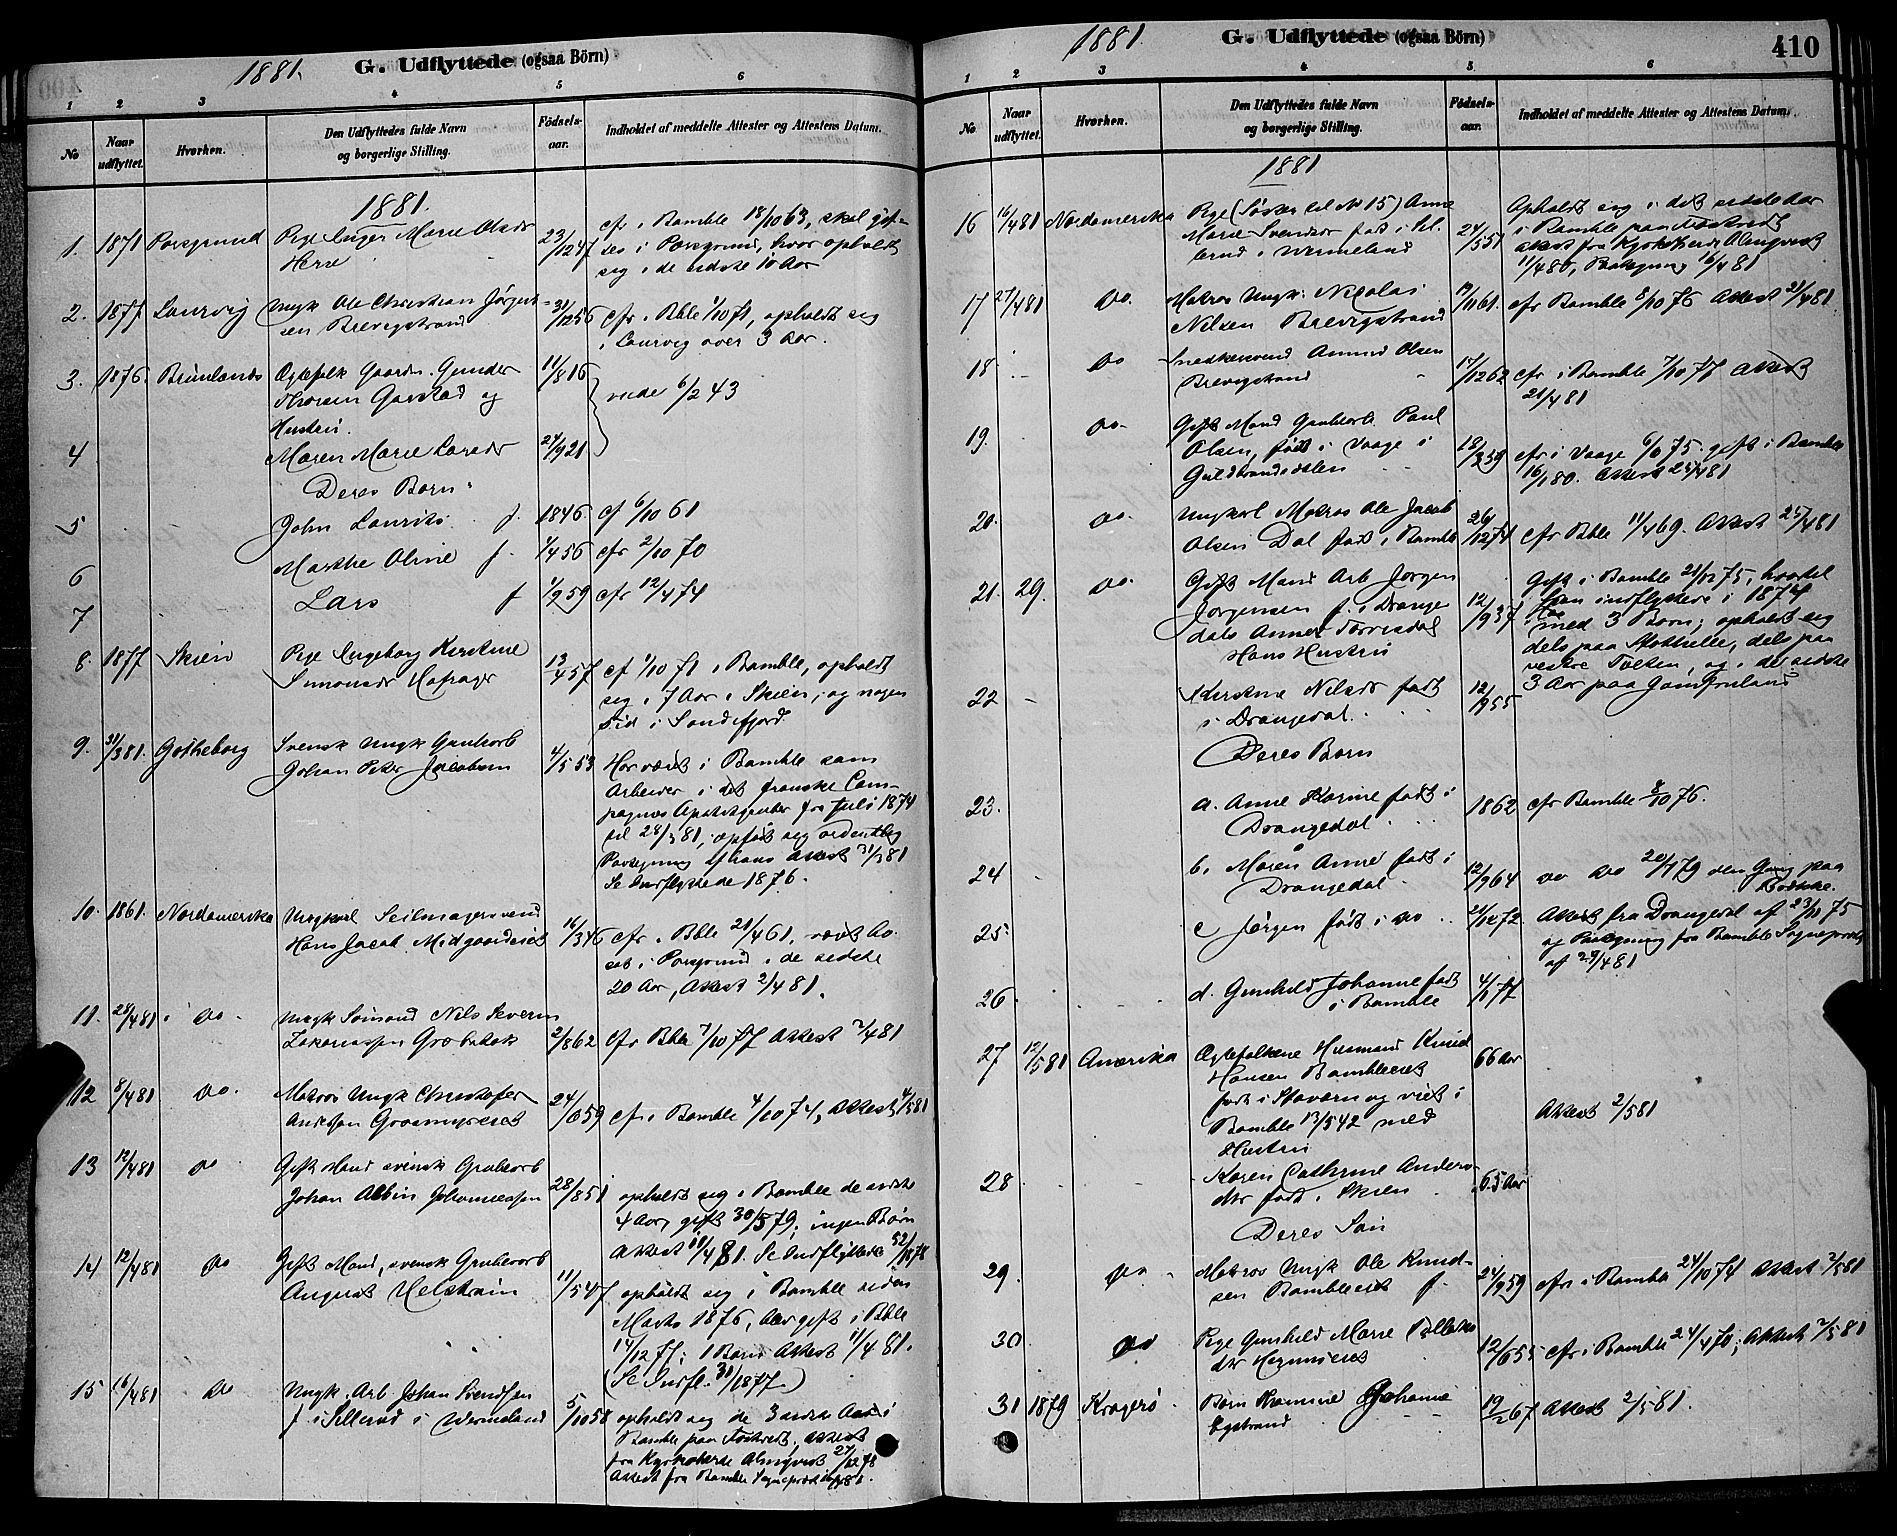 1881.
G. Udflyttede (ogsaa Börn)
1 2 3 4 5 6
No
Naar udflyttet.
Hvorhen.
Den Udflyttedes fulde Navn og borgerlige Stilling.
Födsels-aar.
Indholdet af meddelte Attester og Attestens Datum.
1881.
1. 1871 Porsgrund Pige Inger Marie Olsdr 23/12 47 cfr. i Bamble 18/10 63, skal gif-
Herre tes i Porsgrund, hvor opholdt
seg i de sidste 10 Aar
2. 1877 Laurvig Ungk Ole Christian Jörgen-
sen Brevigstrand 31/12 56 cfr. i Bble 1/10 71, opholdt sig
i Laurvig over 3 Aar.
3. 1876. Brunlanes Ægtefolk Gaardm. Gunder 11/8 16
Thorsen Gavstad og viede 6/2 43
Hustru.
4 Maren Marie Larsdr 24/9 21
Deres Børn:
5 John Laurits f. 1846. cf 6/10 61
6 Marthe Oline f. 1/4 56 cfr 2/10 70
7 Lars f 1/9 59 cfr 12/4 74
8. 1877 Skien Pige Ingeborg Kirstine
Simonsdr Hafsager 13/4 57 cf 1/10 71 i Bamble, opholdt
seg i 7 Aar i Skien, og nogen
Tid i Sandefjord.
9. 31/3 81. Gotheborg Svensk Ungk Grubearb
Johan Peter Jacobsen 4/5 53 Har været i Bamble som
Arbeider i det franske Com-
pagnies Apatitgruber fra Juli 1874
til 28/3 81, opført seg ordentlig
Paategning af hans Attest 31/3 81
Se Indflyttede 1876.
10. 1861. Nordamerika Ungkarl Seilmagersvend
Hans Jacob Midgaardeiet 16/3 46 cfr. i Bble 21/4 61, været bo-
sat i Porsgrund i de sidste
20 Aar, Attest 2/4 81.
11. 28/4 81 i do. Ungk Sömand Nils Severin
Zakariassen Grobstok 2/8 62 Cfr Bble 7/10 77 Attest 2/4 81
12 8/4 81 do. Matros Ungk Christofer
Andersen Grasmyreiet 24/10 59 cfr. i Bamble 4/10 74, Attest 4/5 81
13 12/4 81 do Gift Mand svensk Grubearb
Johan Albin Johannessen 28/8 51 opholdt seg i Bamble de sidste
4 Aar, gift 30/5 79, ingen Børn
Attest 11/4 81. Se Indflyttede 1878
14 12/4 81 do Gift Mand, svensk Grubearb
August Helstrøm 11/5 47 opholdt seg i Bamble siden
Marts 1876, blev gift i Bble
14/12 77; 1 Barn Attest 11/4 81.
(Se Indfl. 1877)
15 16/4 81 do Ungk. Arb Johan Svendsen
f. i Sillerud i Wermeland 5/10 58 opholdt seg de 3 sidste Aar i
Bamble paa Fosketvedt. Attest
fra Kyrkoherde Almqvist 27/12 78
Attest fra Bamble Sogneprest 16/4 81.
1881.
G. Udflyttede (ogsaa Börn)
410
1 2 3 4 5 6
No
Naar udflyttet.
Hvorhen.
Den Udflyttedes fulde Navn og borgerlige Stilling.
Födsels-aar.
Indholdet af meddelte Attester og Attestens Datum.
1881
16 16/4 81 Nordamerika Pige (Søster til No 15) Anne
Marie Svendsdr født i Sil-
lerud i Wermeland 24/5 51 Opholdt seg i det sidste Aar
i Bamble paa
attest fra Kyrkoherde Almqvist
11/4 80, Paategning 16/4 81
17 27/4 81 do. Matros Ungk. Nicolai
Nilsen Brevigstrand 19/10 61. cfr Bamble 8/10 76 Attest 21/4 81
18 do Snedkersvend Anund Olsen
Brevigstrand 17/12 62 cfr i Bamble 7/10 77 Attest
21/4 81
19. do. Gift Mand Grubearb. Paul
Olsen, født i Vaage i
Guldbrandsdalen 18/3 59 cfr i Vaage 6/6 75. gift i Bamble
16/1 80. Attest 25/4 81
20. do. Ungkarl Matros Ole Jacob
Olsen Dal født i Bamble 26/12 cfr Bble 11/4 69. Attest 25/4 81
21. 29. do. Gift Mand Arb Jørgen
Jørgensen f. i Drange-
dals Annex Tørrisdal 12/9 37
Hans Hustru
Gift i Bamble 21/12 75, hvortil
han indflyttede i 1874
med 3 Børn; opholdt seg
dels paa Stathelle, dels paa
vestre Tveten, og i de sidste
3 Aar paa Jomfruland
22 Kirstine Nilsdr født
i Drangedal 12/9 55
Deres Børn
23. a. Anne Karine født i
Drangedal. 1862 cfr Bamble 8/10 76.
24 b. Maren Anne født i
Drangedal 12/9 64 do do 20/4 79
25 c Jørgen født i do 21/10 72 Attest fra Drangedal af 23/11 75
og Paategning fra Bamble Sogneprest
af 29/4 81
26 d. Gunhild Johanne født
i Bamble 4/1 77
27 12/5 81 Amerika Ægtefolkene Husmand Knud
Hansen Bambleeiet 66 Aar
født i Stavern og viet i
Bamble 13/5 42 med
Hustru
Attest 2/5 81
28 Karen Cathrine Anders-
dtr født i Skien 65 Aar
Deres Søn
29. do Matros Ungk Ole Knud-
sen Bambleeiet f. 24/9 59 cfr i Bamble 24/10 74 Attest 2/5 81
30 do Pige Gunhild Marie Tellefs-
dtr 12/6 55 cfr i Bamble 24/4 70, Attest 2/5 81
31 1879 Kragerø. Barn Johanne
19/2 67 Attest 2/5 81.